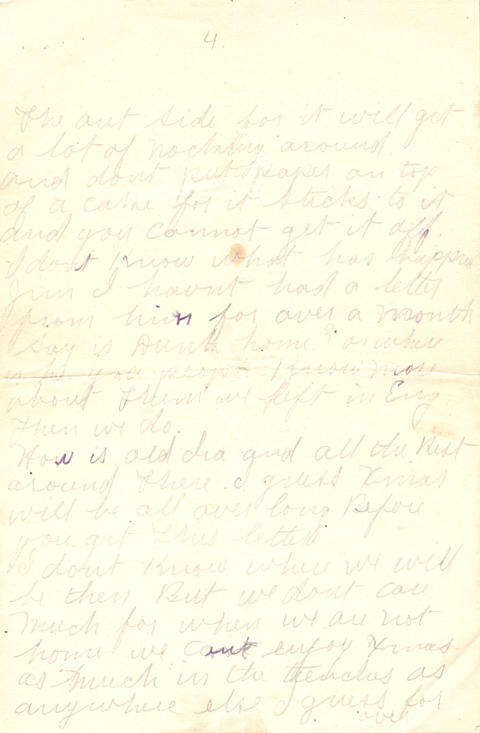 4
The out side for it will get
a lot of nocking around
and dont put paper on top
of a cake for it sticks to it
and you cannot get it off.
I dont know what has happed
Jim I havnt had a letter
from him for over a month
Say is home? or where
is he you people know more
about them we left in Eng
then we do.
How is old Ira and all the Rest
around there I guess Xmas
will be all over long Before
you get this letter
I dont know where we will
be then But we dont care
much for when we are not
home we can enjoy Xmas
as much in the trenches as
anywhere else I guess for
over